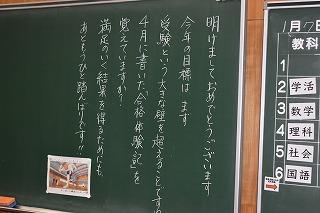 明けましておめでとうございます
今年の目標は まず
受験という大きな壁を超えることですね
4月に書いた「合格体験記」を
覚えていますか？
満足のいく結果を得るためにも、
あともうひと踏んばりです!!
1月7日
教科
1
2 学活
3 数学
4 理科
5 社会
6 国語